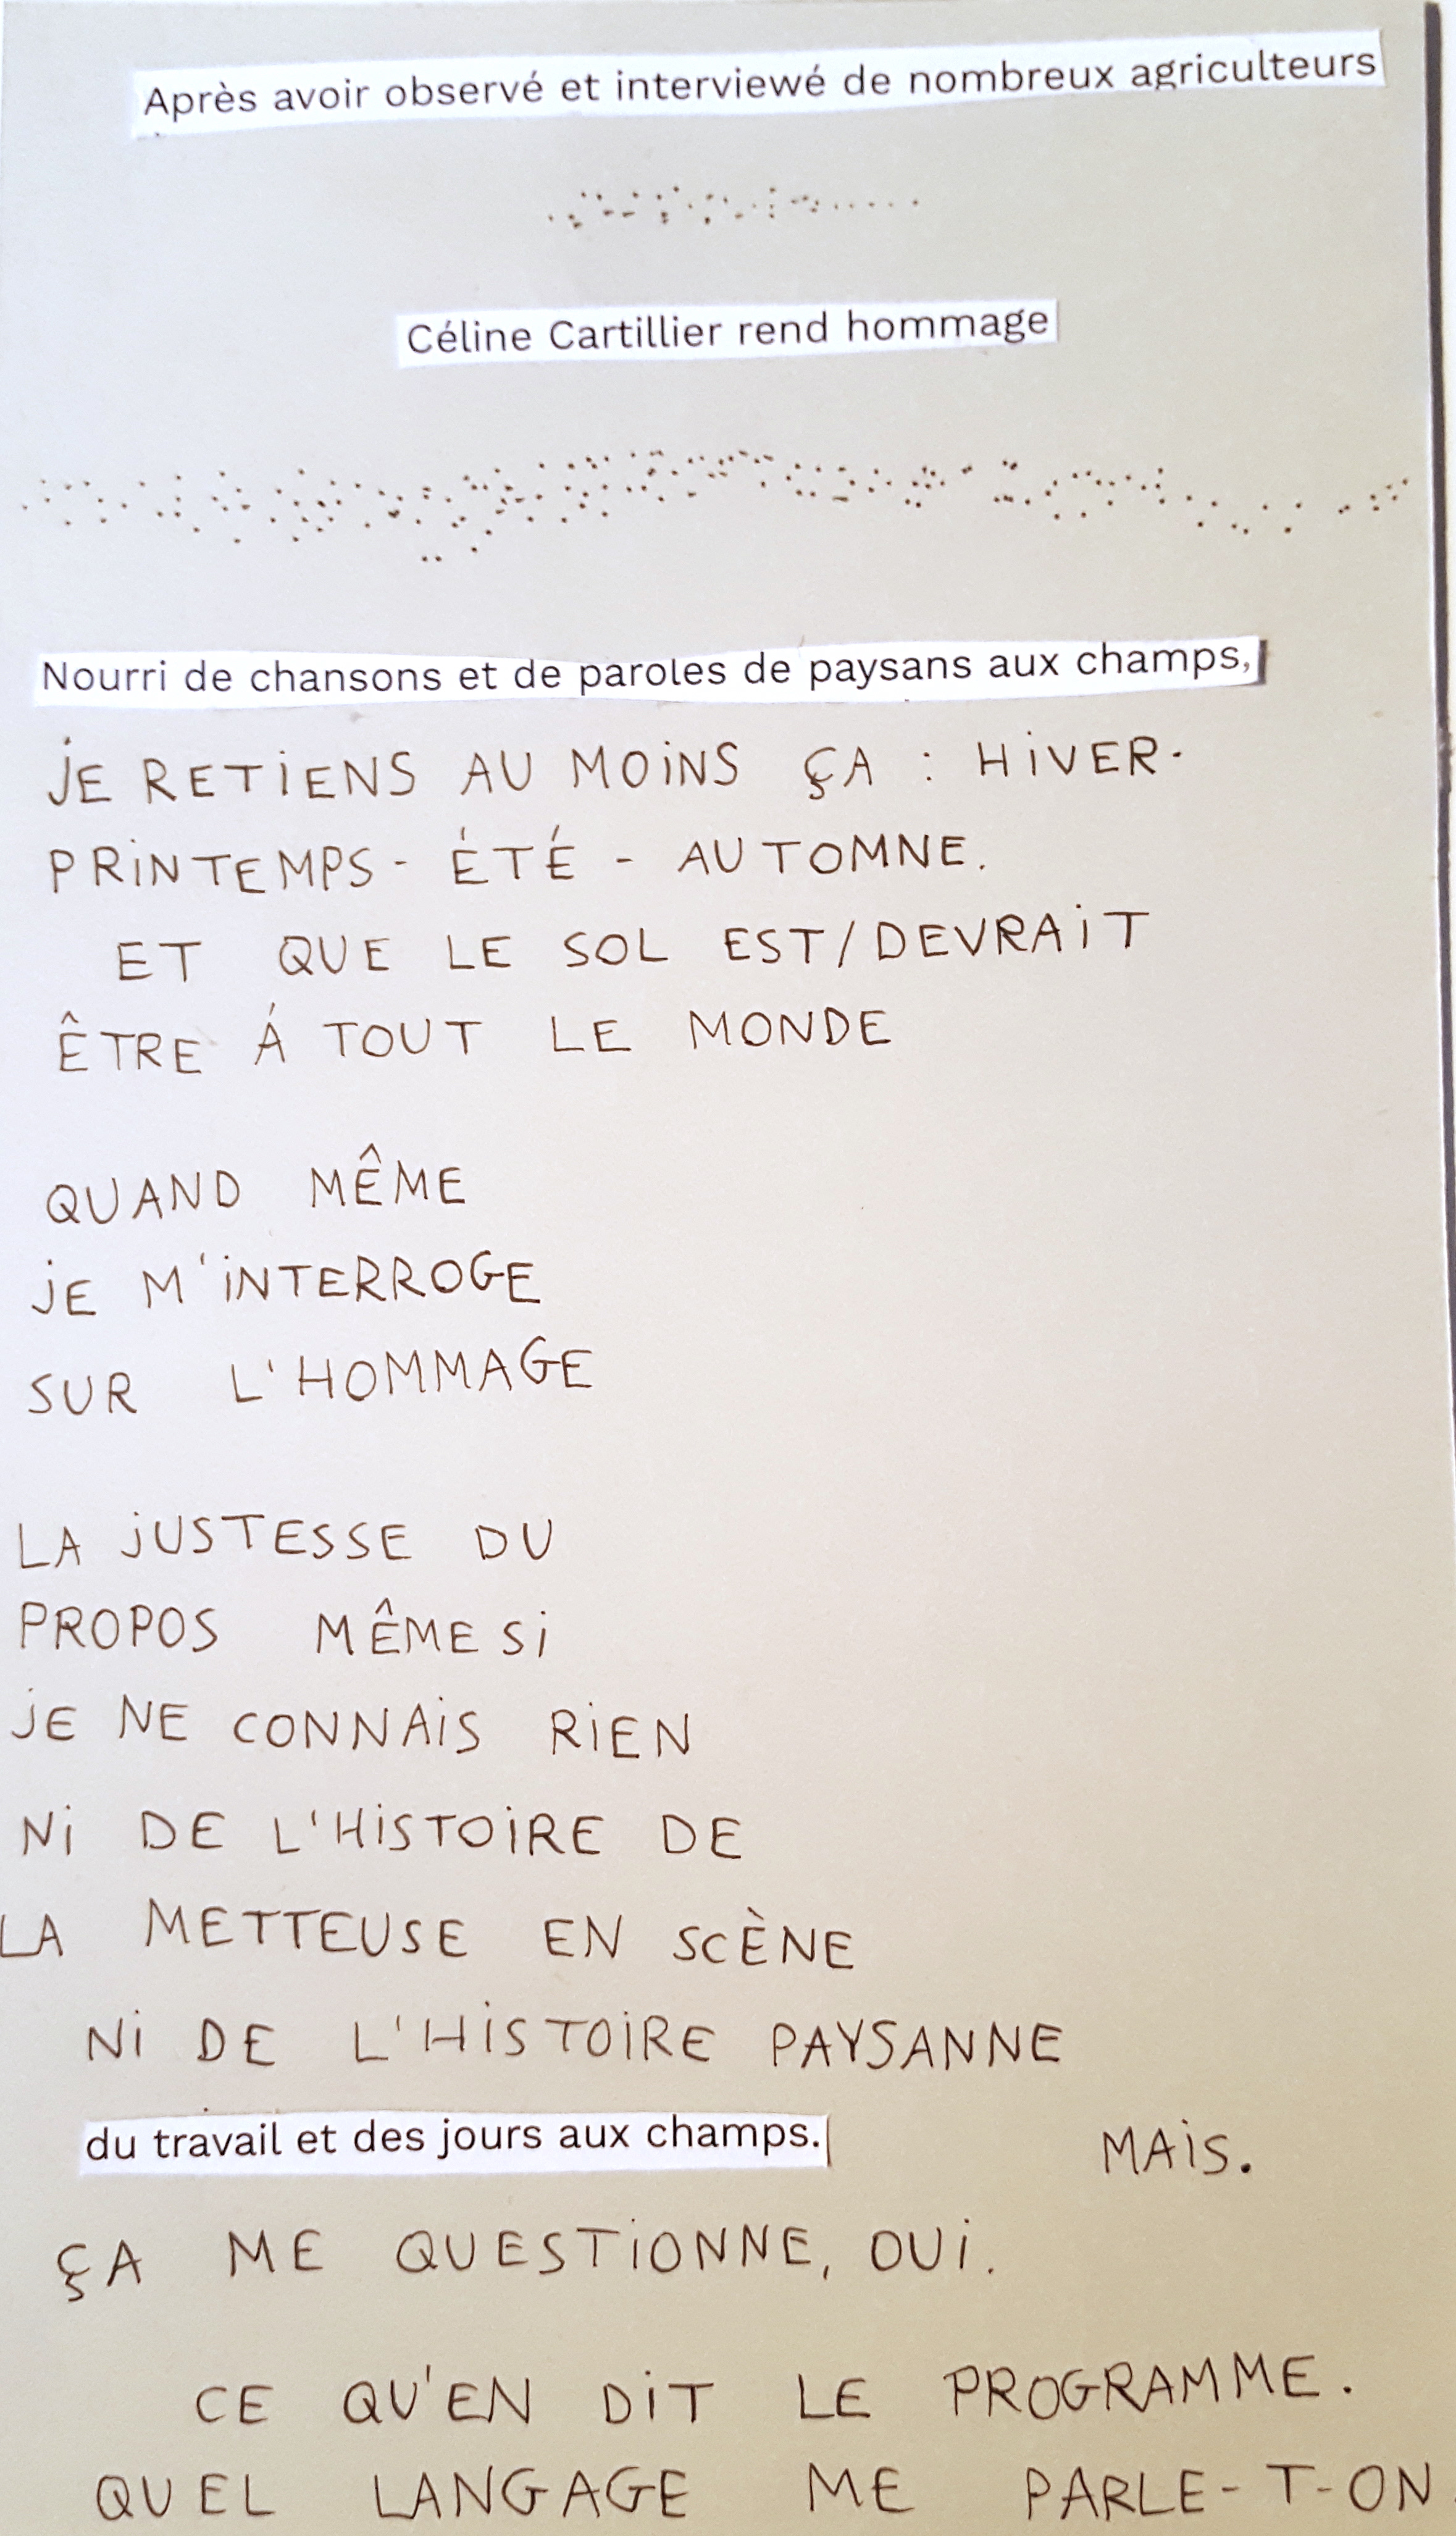 Après avoir observé et interviewé de nombreux agriculteurs
Céline Cartillier rend hommage
Nourri de chansons et de paroles de paysans aux champs,
JE RETIENS AU MOINS ÇA : HIVER-
PRINTEMPS - ÉTÉ - AUTOMNE.
ET QUE LE SOL EST/DEVRAIT
ÊTRE Á TOUT LE MONDE
QUAND MÊME
JE M'INTERROGE
SUR L'HOMMAGE
LA JUSTESSE DU
PROPOS MÊME SI
JE NE CONNAIS RIEN
NI DE L'HISTOIRE DE
LA METTEUSE EN SCÈNE
NI DE L'HISTOIRE PAYSANNE
du travail et des jours aux champs. MAIS.
ÇA ME QUESTIONNE, OUI.
CE QU'EN DIT LE PROGRAMME.
QUEL LANGAGE ME PARLE-T-ON.